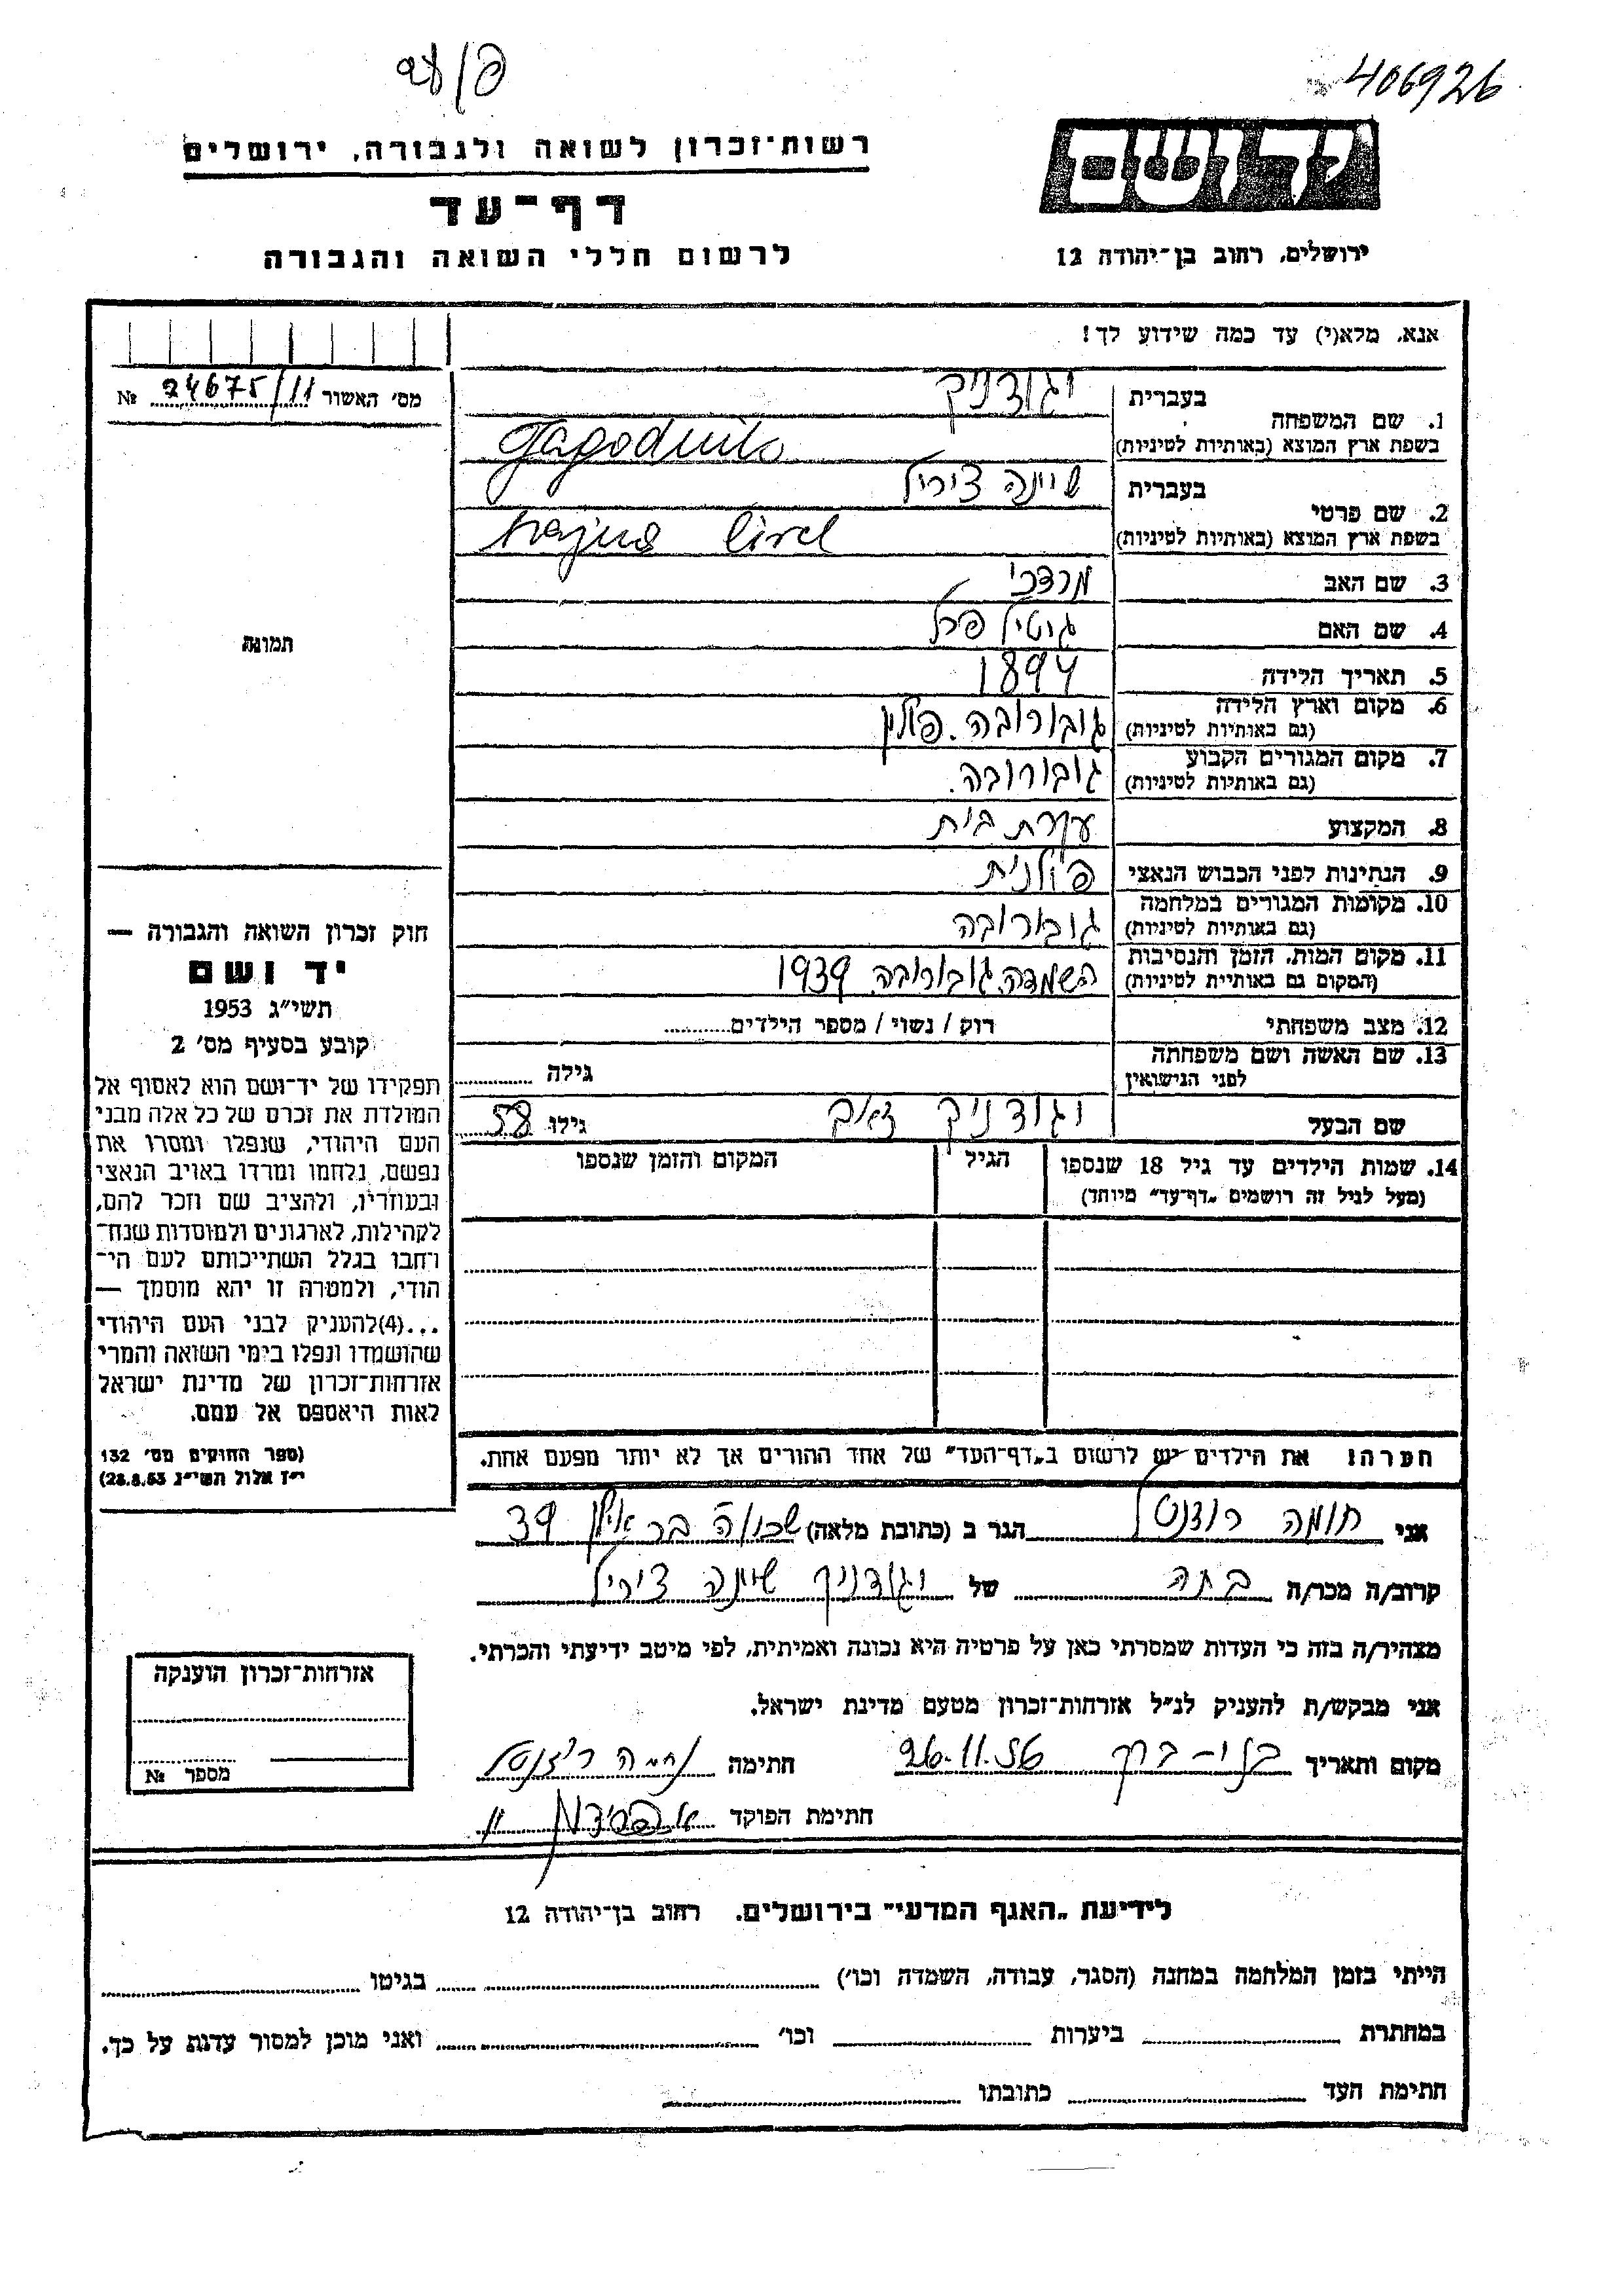 406926
רשות־זכרון לשואה ולגבורה, ירושלים
דף־עד
לרשום חללי השואה והגבורה
יד ושם
ירושלים, רחוב בן־יהודה 12
אנא, מלא(י) עד כמה שידוע לך!
מס׳ האשור 24675/11 №
1. שם המשפחה
בעברית יגודניק
בשפת ארץ המוצא (באותיות לטיניות) Jagodnik
2. שם פרטי
בעברית שיינה צירל
בשפת ארץ המוצא (באותיות לטיניות)
3. שם האב מרדכי
4. שם האם גוטיל פרל
5. תאריך הלידה 1894
6. מקום וארץ הלידה גובורובה. פולין
(גם באותיות לטיניות)
7. מקום המגורים הקבוע גובורובה.
(גם באותיות לטיניות)
8. המקצוע עקרת בית
9. הנתינות לפני הכבוש הנאצי פולנית
10. מקומות המגורים במלחמה גובורובה
(גם באותיות לטיניות)
11. מקום המות, הזמן והנסיבות השמדה. גובורובה. 1939
(המקום גם באותיית לטיניות)
12. מצב משפחתי רוק / נשוי / מספר הילדים
13. שם האשה ושם משפחתה
לפני הנישואין גילה
שם הבעל יגודניק זאב גילו 58
14. שמות הילדים עד גיל 18 שנספו הגיל המקום והזמן שנספו
(מעל לגיל זה רושמים „דף־עד״ מיוחד)
הערה! את הילדים יש לרשום ב„דף־העד״ של אחד ההורים אך לא יותר מפעם אחת.
תמונה
חוק זכרון השואה והגבורה —
יד ושם
תשי״ג 1953
קובע בסעיף מס׳ 2
תפקידו של יד־ושם הוא לאסוף אל
המולדת את זכרם של כל אלה מבני
העם היהודי, שנפלו ומסרו את
נפשם, נלחמו ומרדו באויב הנאצי
ובעוזריו, ולהציב שם וזכר להם,
לקהילות, לארגונים ולמוסדות שנח־
רחבו בגלל השתייכותם לעם הי־
הודי, ולמטרה זו יהא מוסמך —
...(4)להעניק לבני העם היהודי
שהושמדו ונפלו בימי השואה והמרי
אזרחות־זכרון של מדינת ישראל
לאות היאספם אל עמם.
(ספר החוקים מס׳ 132
י״ז אלול תשי״ג 28.8.53)
אני נחמה רוזנטל הגר ב (כתובת מלאה) שכונה בר אילן 39
קרוב/ה מכר/ה בתה של יגודניק שיינה צירל
מצהיר/ה בזה כי העדות שמסרתי כאן על פרטיה היא נכונה ואמיתית, לפי מיטב ידיעתי והכרתי.
אני מבקש/ת להעניק לנ״ל אזרחות־זכרון מטעם מדינת ישראל.
מקום ותאריך בני-ברק 26.11.56 חתימה נחמה רוזנטל
חתימת הפוקד
אזרחות־זכרון הוענקה
מספר №
לידיעת „האגף המדעי״ בירושלים, רחוב בן־יהודה 12
הייתי בזמן המלחמה במחנה (הסגר, עבודה, השמדה וכו׳) בגיטו
במחתרת ביערות וכו׳ ואני מוכן למסור עדות על כך.
חתימת העד כתובתו